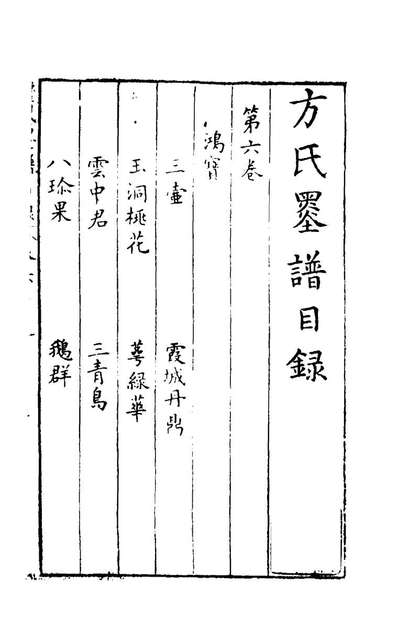 方氏墨譜目録
第六卷
鴻寶
三壷　霞城丹鼎
玉洞桃花　萼緑華
雲中君　三青鳥
八珎果　鵝群